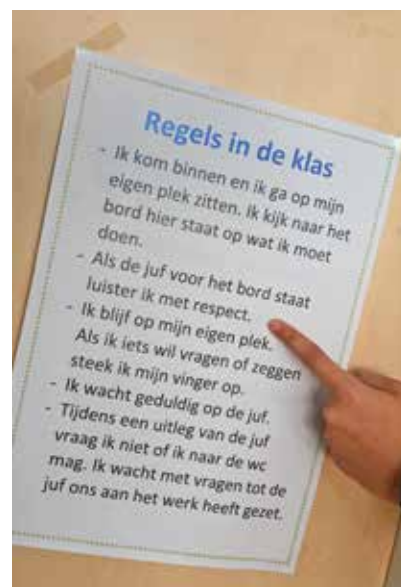 Regels in de klas
- Ik kom binnen en ik ga op mijn
eigen plek zitten. Ik kijk naar het
bord hier staat op wat ik moet
doen.
- Als de juf voor het bord staat
luister ik met respect.
- Ik blijf op mijn eigen plek.
Als ik iets wil vragen of zeggen
steek ik mijn vinger op.
- Ik wacht geduldig op de juf.
- Tijdens een uitleg van de juf
vraag ik niet of ik naar de wc
mag. Ik wacht met vragen tot de
juf ons aan het werk heeft gezet.